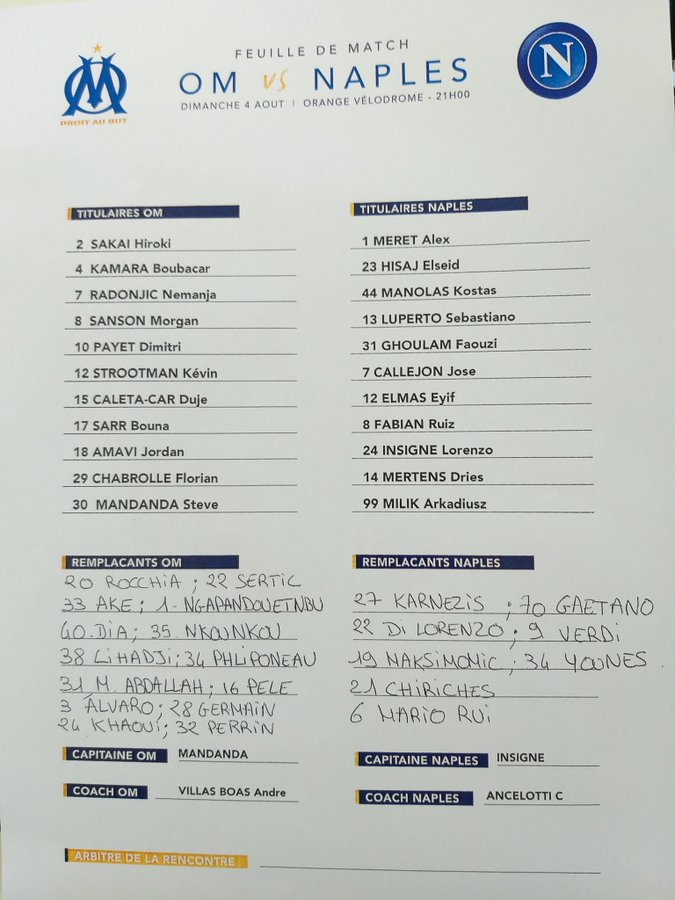 FEUILLE DE MATCH
OM vs NAPLES
DIMANCHE 4 AOUT | ORANGE VÉLODROME - 21H00
DROIT AU BUT
N
TITULAIRES OM
2 SAKAI Hiroki
4 KAMARA Boubacar
7 RADONJIC Nemanja
8 SANSON Morgan
10 PAYET Dimitri
12 STROOTMAN Kévin
15 CALETA-CAR Duje
17 SARR Bouna
18 AMAVI Jordan
29 CHABROLLE Florian
30 MANDANDA Steve
TITULAIRES NAPLES
1 MERET Alex
23 HISAJ Elseid
44 MANOLAS Kostas
13 LUPERTO Sebastiano
31 GHOULAM Faouzi
7 CALLEJON Jose
12 ELMAS Eyif
8 FABIAN Ruiz
24 INSIGNE Lorenzo
14 MERTENS Dries
99 MILIK Arkadiusz
REMPLACANTS OM
20 ROCCHIA ; 22 SERTIC
33 AKE ; 1- NGAPANDOUETNBU
40. DIA ; 35. NKOUNKOU
38 LIHADJI ; 34 PHLIPONEAU
31 M. ABDALLAH ; 16 PELE
3 ÁLVARO ; 28 GERMAIN
24 KHAOUI ; 32 PERRIN
REMPLACANTS NAPLES
27 KARNEZIS ; 70 GAETANO
22 DI LORENZO ; 9 VERDI
19 MAKSIMOVIC ; 34 YOUNES
21 CHIRICHES
6 MARIO RUI
CAPITAINE OM MANDANDA
COACH OM VILLAS BOAS Andre
CAPITAINE NAPLES INSIGNE
COACH NAPLES ANCELOTTI C
ARBITRE DE LA RENCONTRE